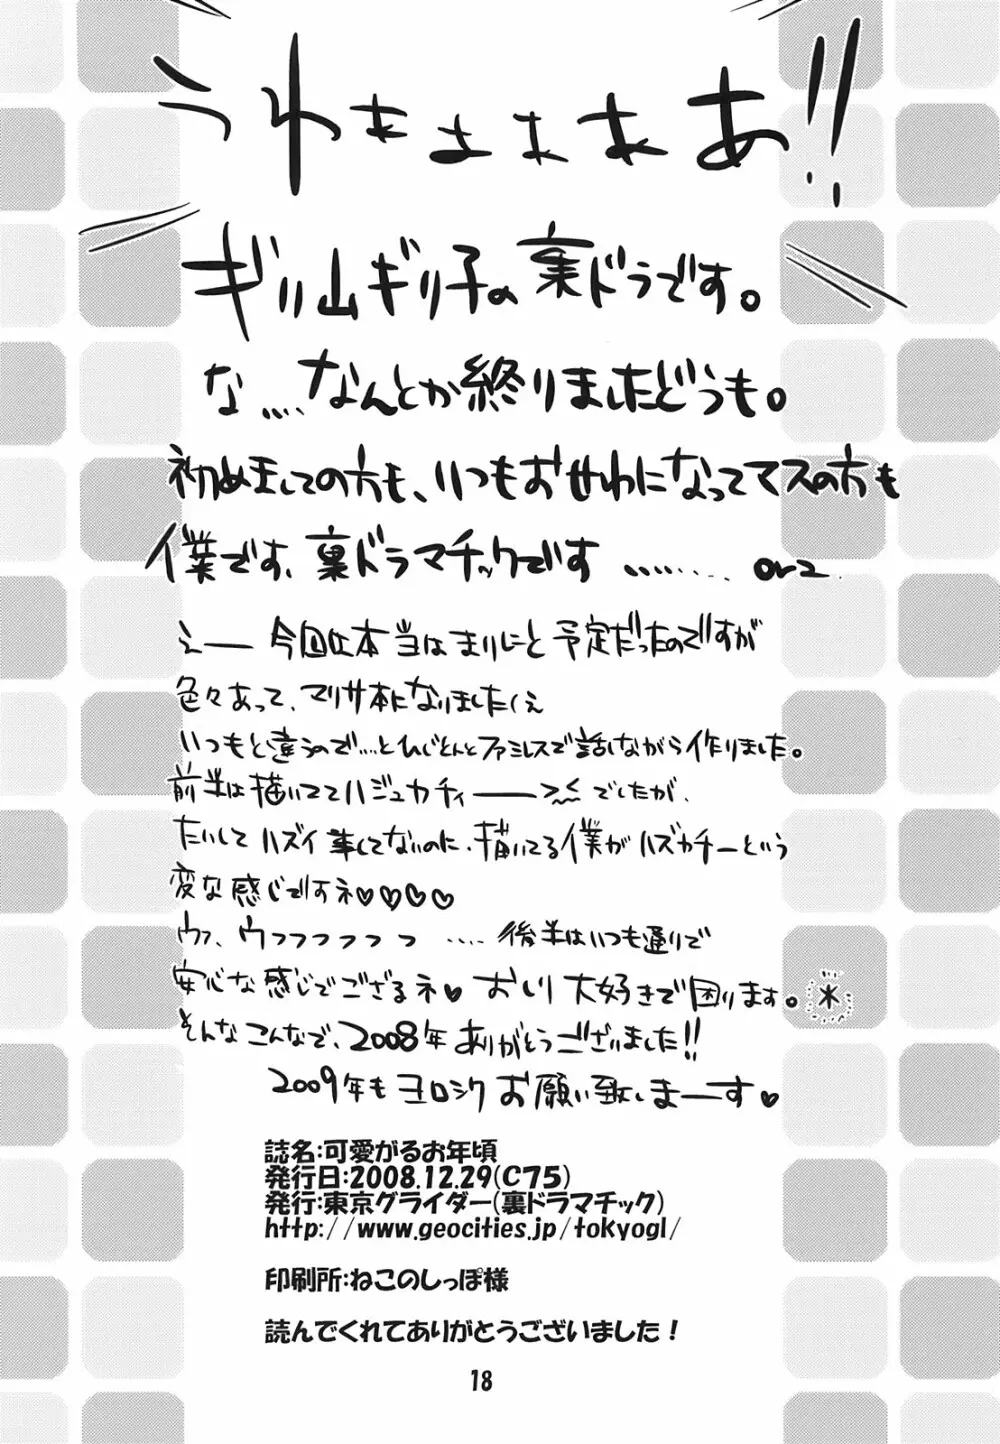 うわぁぁぁぁあ!!
ギリ山ギリ子の裏ドラです。
な....なんとか終りましたどうも。
初めましての方も、いつもおせわになってマスの方も
僕です、裏ドラマチックです ......... orz
えー 今回は本当はまりにと予定だったのですが
色々あって、マリサ本になりました(え
いつもと違うので...とひじとんとファミレスで話しながら作りました。
前半は描いててハジュカチィーーでしたが、
たいしてハズイ事してないのに、描いてる僕がハズカチーという
変な感じですネ♥♥♥♥
ウフ、ウフフフフフフ .... 後半はいつも通りで
安心な感じでござるネ♥ おしり大好きで困ります。*
そんなこんなで、2008年ありがとうございました!!
2009年もヨロシクお願い致しまーーす♥
誌名:可愛がるお年頃
発行日:2008.12.29(C75)
発行:東京グライダー(裏ドラマチック)
http://www.geocities.jp/tokyogl/
印刷所:ねこのしっぽ様
読んでくれてありがとうございました!
18